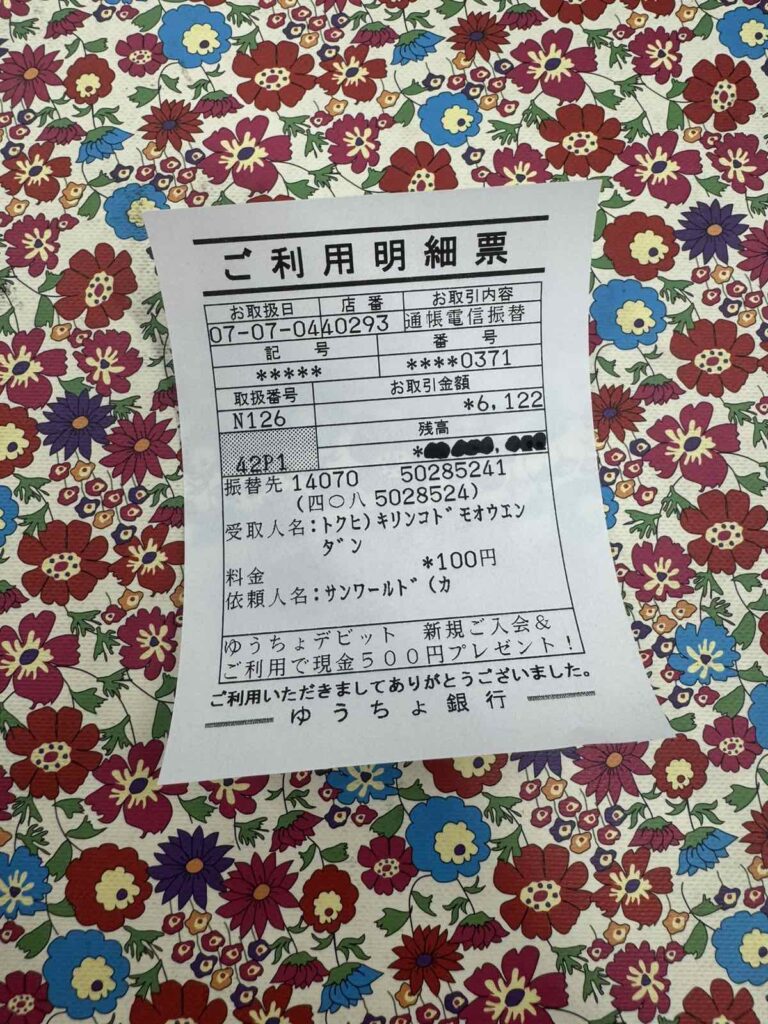 ご利用明細票
お取扱日 店番 お取引内容
07-07-04 40293 通帳電信振替
記号 番号
***** ****0371
取扱番号 お取引金額
N126 *6,122
残高
42P1 *
振替先 14070 50285241
(四〇八 5028524)
受取人名:トクヒ)キリンコドモオウエン
ダン
料金 *100円
依頼人名:サンワールド(カ
ゆうちょデビット 新規ご入会&
ご利用で現金500円プレゼント!
ご利用いただきましてありがとうございました。
ゆうちょ銀行